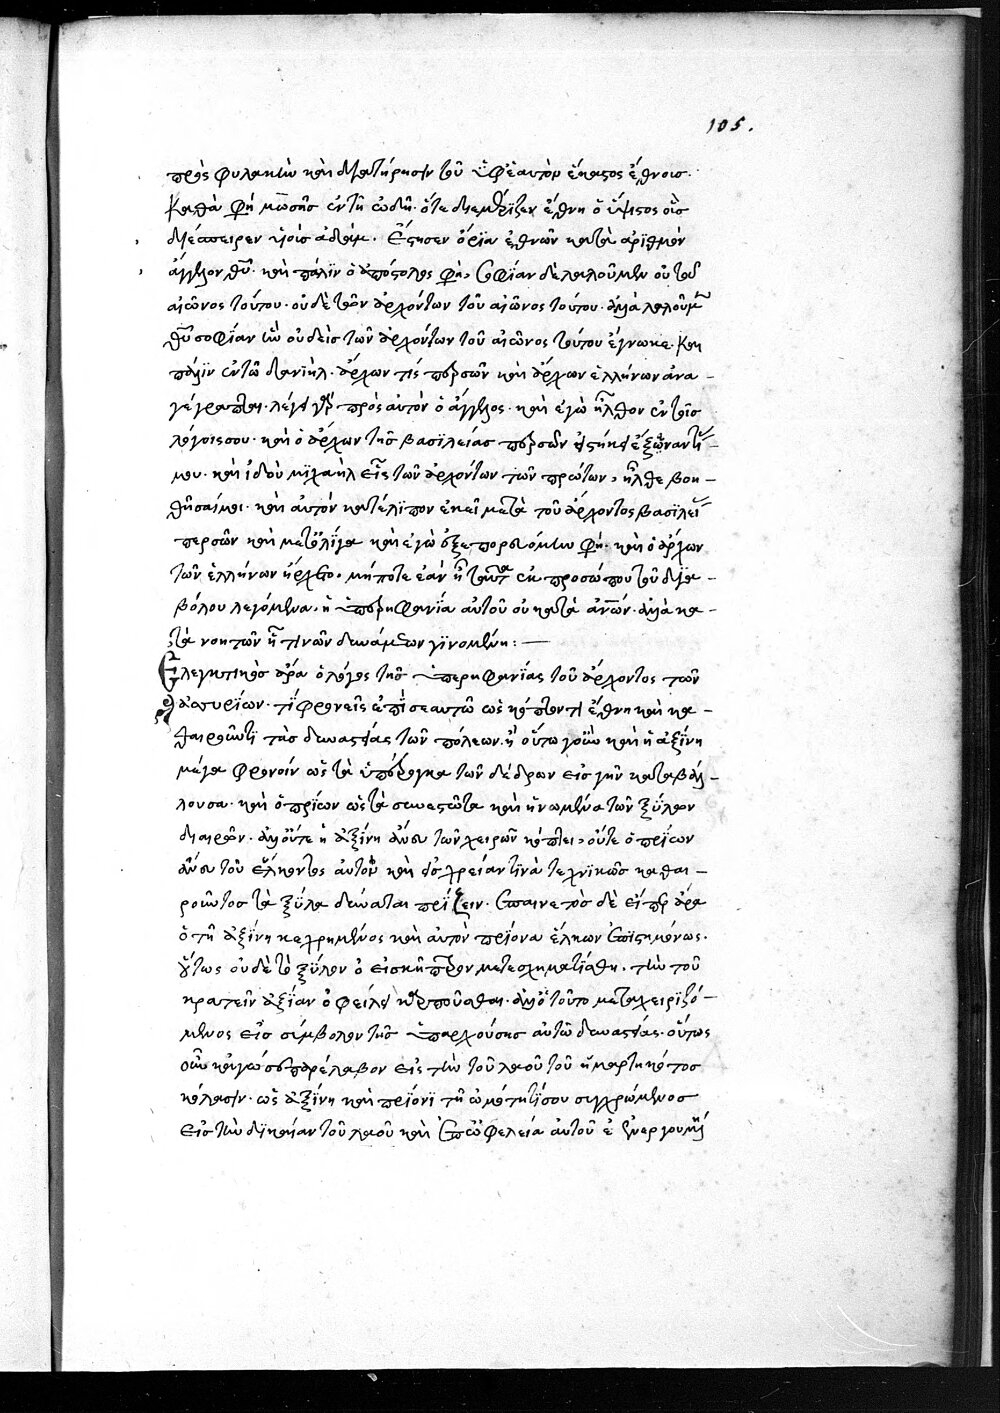 105.
πρὸς φυλακὴν καὶ διατήρησιν τοῦ ὑφ' ἑαυτὸν ἕκαστος ἔθνους.
Καθά φη μωσῆς ἐν τῆ ὠδῆ. ὅτε διεμέριζεν ἔθνη ὁ ὕψιστος οὓς
διέσπειρεν υἱοὺς ἀδάμ. Ἔστησεν ὅρια ἐθνῶν κατὰ ἀριθμὸν
ἀγγέλων θῦ. καὶ πάλιν ὁ ἀπόστολος φη, Σοφίαν δὲ λαλοῦμεν οὐ τοῦ
αἰῶνος τούτου. οὐδὲ τῶν ἀρχόντων τοῦ αἰῶνος τούτου. ἀλλὰ λαλοῦμεν
θῦ σοφίαν ἣν οὐδεὶς τῶν ἀρχόντων τοῦ αἰῶνος τούτου ἔγνωκε. Καὶ
πάλιν ἐν τῶ δανιὴλ. ἄρχων τίς περσῶν καὶ ἄρχων ἑλλήνων ἀνα-
γέγραπται. λέγει γὰρ πρὸς αὐτὸν ὁ ἄγγελος. καὶ ἐγὼ ἦλθον ἐν τοῖς
λόγοις σου. καὶ ὁ ἄρχων τῆς βασιλείας περσῶν εἱστήκει ἐξεναντίας
μου. καὶ ἰδοὺ μιχαὴλ εἷς τῶν ἀρχόντων τῶν πρώτων, ἦλθε βοη-
θῆσαί μοι. καὶ αὐτὸν κατέλιπον ἐκεῖ μετὰ τοῦ ἄρχοντος βασιλείας
περσῶν καὶ μετ' ὀλίγα καὶ ἐγὼ ἐξεπορευόμην φη. καὶ ὁ ἄρχων
τῶν ἑλλήνων ἤρχετο. μήποτε ἐὰν ἦ ταῦτα ἐκ προσώπου τοῦ δια-
βόλου λεγόμενα. ἡ ὑπερηφανία αὐτοῦ οὐ κατὰ ἀνῶν. ἀλλὰ κα-
τὰ νοητῶν ἦ τινῶν δυνάμεων γινομένη: —
Ἐλεγκτικὸς ἄρα ὁ λόγος τῆς ὑπερηφανίας τοῦ ἄρχοντος τῶν
ἀσσυρίων. τί φρονεῖς ἐπὶ σεαυτῶ ὡς κόπτοντι ἔθνη καὶ κα-
θαιροῦντι τὰς δυναστείας τῶν πόλεων. ἢ οὕτω γοῦν καὶ ἡ ἀξίνη
μέγα φρονοίη ὡς τὰ ὑπέρογκα τῶν δένδρων εἰς γῆν καταβάλ-
λουσα. καὶ ὁ πρίων ὡς τὰ συνεστῶτα καὶ ἡνωμένα τῶν ξύλων
διαιρῶν. ἀλλ' οὔτε ἡ ἀξίνη ἄνευ τῶν χειρῶν κόπτει, οὔτε ὁ πρίων
ἄνευ τοῦ ἕλκοντος αὐτὸν καὶ εἰς χρείαν τινὰ τεχνικῶς καθαι-
ροῦντος τὰ ξύλα δύναται πρίζειν. Ἐπαινετὸς δὲ εἴπερ ἄρα
ὁ τῆ ἀξίνη κεχρημένος καὶ αὐτὸν πρίονα ἕλκων ἐπιστημόνως.
οὕτως οὐδὲ τὸ ξύλον ὁ εἰς σκῆπτρον μετεσχηματίσθη. τὴν τοῦ
κρατεῖν ἀξίαν ὀφείλει καρποῦσθαι. ἀλλ' ὁ τοῦτο μεταχειριζό-
μενος εἰς σύμβολον τῆς ὑπαρχούσης αὐτῶ δυναστείας. οὕτως
οὖν κἀγώ σε παρέλαβον εἰς τὴν τοῦ λαοῦ τοῦ ἡμαρτηκότος
κόλασιν. ὡς ἀξίνη καὶ πρίονι τῆ ὠμότητί σου συγχρώμενος
εἰς τὴν δικαίαν τοῦ λαοῦ καὶ ἐπ' ὠφελεία αὐτοῦ ἐνεργουμένην